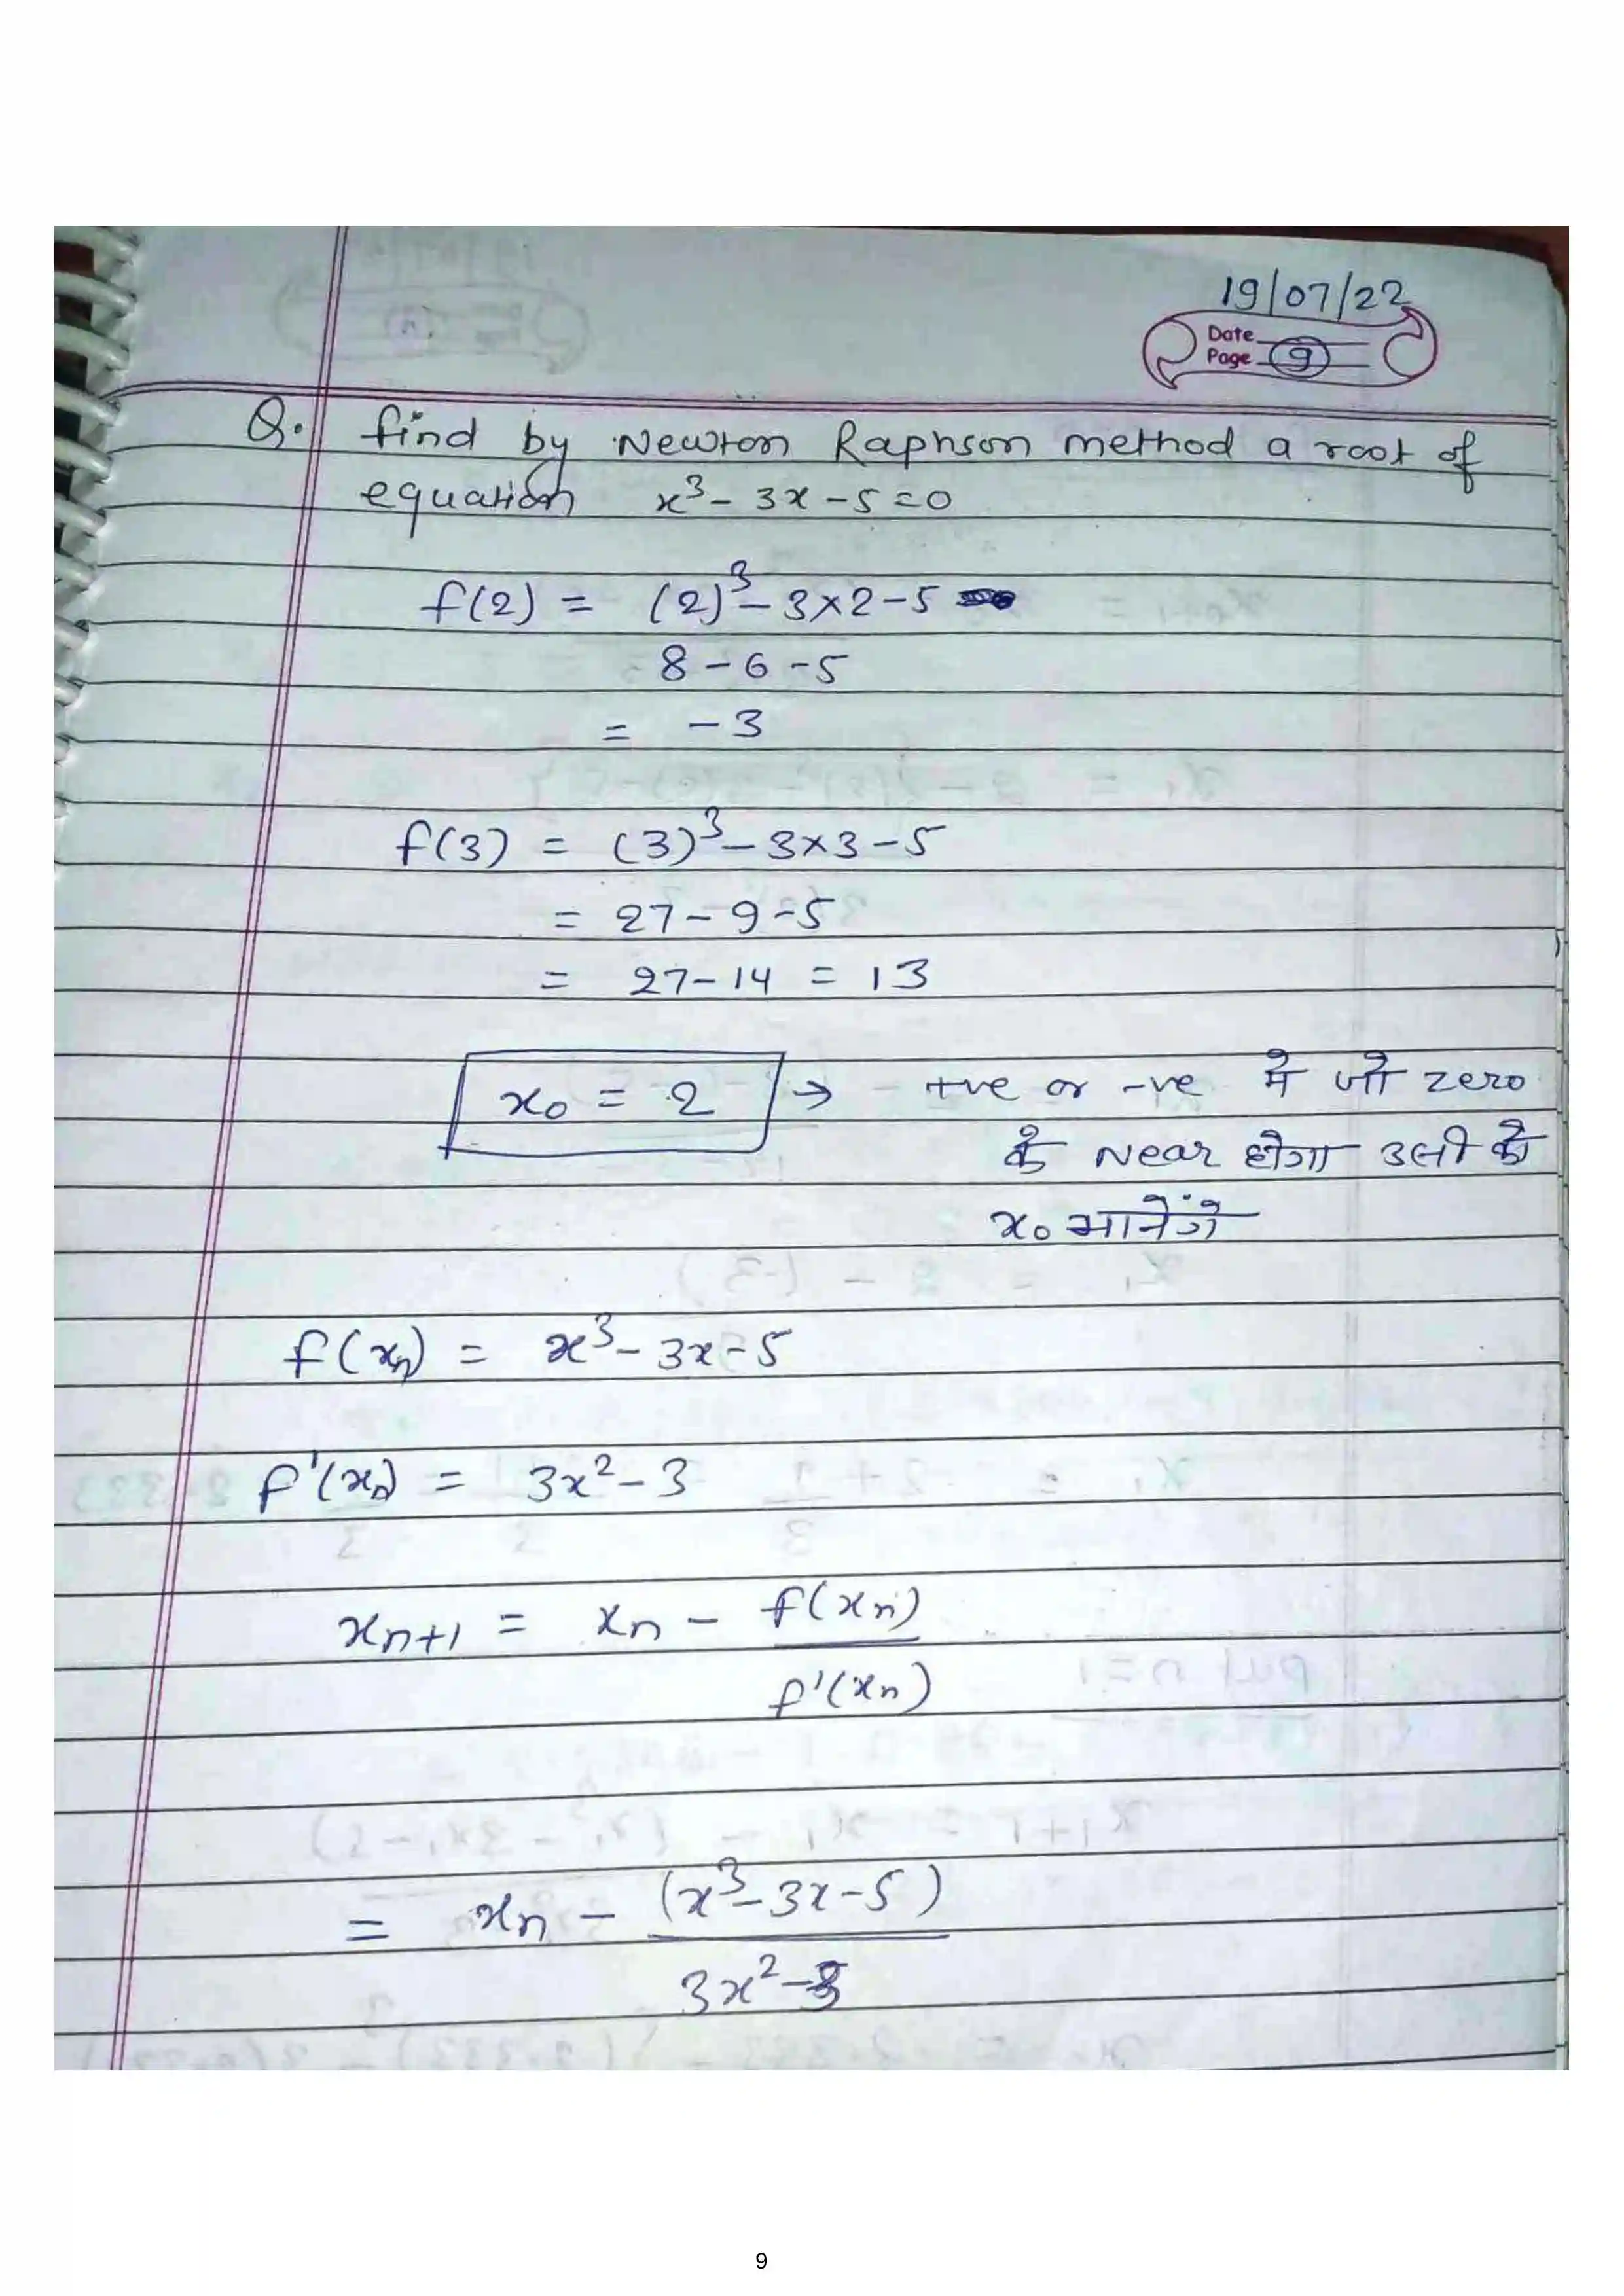 19/07/22
Date
Page 9
Q. find by Newton Raphson method a root of
equation x³- 3x -5=0
f(2) = (2)³- 3×2-5
8 - 6 -5
= -3
f(3) = (3)³- 3×3-5
= 27- 9-5
= 27- 14 = 13
x₀ = 2 → +ve or -ve में जो zero
के Near होगा उसी को
x₀ मानेंगे
f(xₙ) = x³- 3x-5
f'(xₙ) = 3x²- 3
xₙ₊₁ = xₙ - f(xₙ)
f'(xₙ)
= xₙ - (x³-3x-5)
3x²-3
9